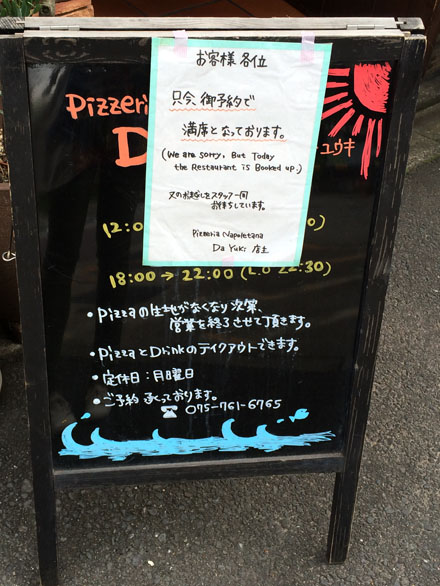 お客様各位
只今、御予約で
満席となっております。
(We are sorry, But Today
the Restaurant is Booked up.)
又のお越しをスタッフ一同
お待ちしています。
Pizzeria Napoletana
Da Yuki 店主
Pizzeri
D
ユウキ
12:0
0)
18:00 → 22:00 (L.O 22:30)
・Pizzaの生地がなくなり次第、
営業を終了させて頂きます。
・PizzaとDrinkのテイクアウトできます。
・定休日:月曜日
・ご予約承っております。
☎ 075-761-6765